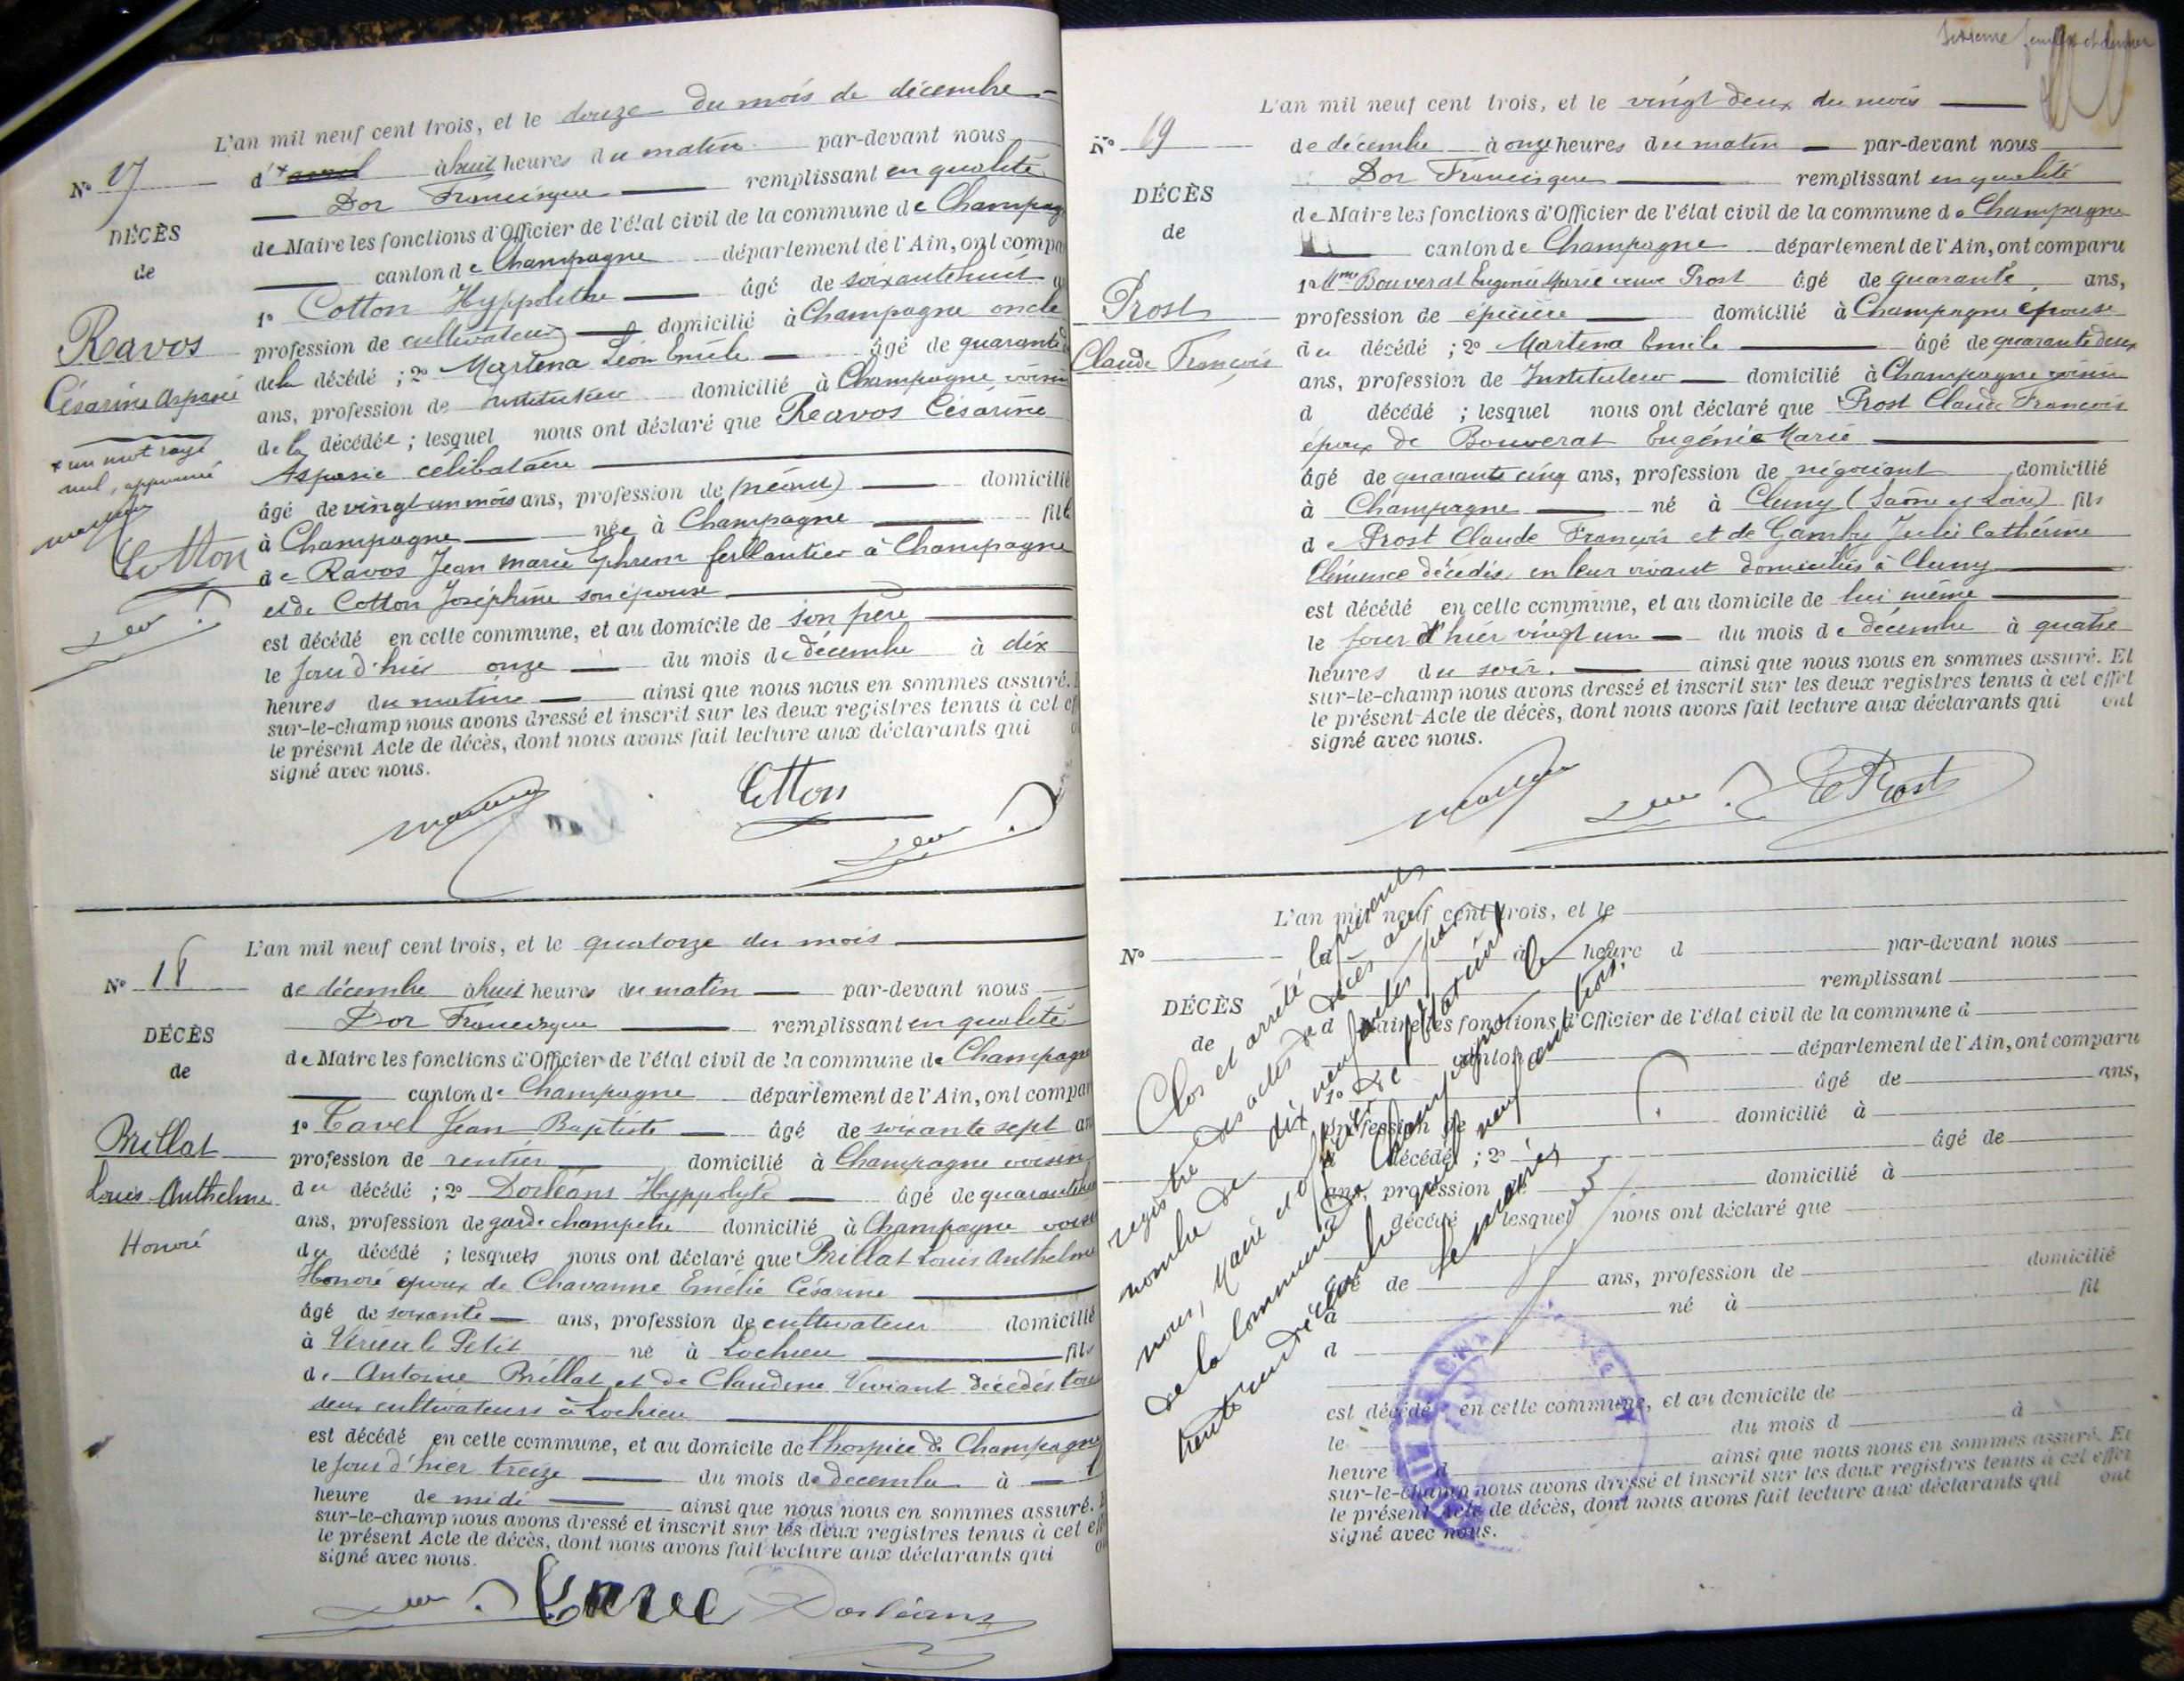 L'an mil neuf cent trois, et le douze du mois de décembre
N° 17
d'+ avril à huit heures du matin par-devant nous
Dor Francisque remplissant en qualité
DÉCÈS
de Maire les fonctions d'Officier de l'état civil de la commune de Champag
de
canton de Champagne département de l'Ain, ont compa
1° Cotton Hyppolithe âgé de soixante huit
Ravos
profession de cultivateur domicilié à Champagne oncle
Césarine Aspasie
de la décédé ; 2° Martena Léon Emile âgé de quarante
ans, profession de instituteur domicilié à Champagne, voisin
+ un mot rayé
nul, approuvé
de la décédée ; lesquel nous ont déclaré que Ravos Césarine
Aspasie célibataire
âgé de vingt un mois ans, profession de (néant) domicilié
Cotton
à Champagne née à Champagne fille
de Ravos Jean Marie Ephrem ferblantier à Champagne
et de Cotton Joséphine son épouse
est décédé en cette commune, et au domicile de son père
le jour d'hier onze du mois de décembre à dix
heures du matin ainsi que nous nous en sommes assuré.
sur-le-champ nous avons dressé et inscrit sur les deux registres tenus à cet eff
le présent Acte de décès, dont nous avons fait lecture aux déclarants qui
signé avec nous.
Cotton
L'an mil neuf cent trois, et le quatorze du mois
N° 18
de décembre à huit heures du matin par-devant nous
Dor Francisque remplissant en qualité
DÉCÈS
de Maire les fonctions d'Officier de l'état civil de la commune de Champagne
de
canton de Champagne département de l'Ain, ont compar
1° Tavel Jean Baptiste âgé de soixante sept an
Brillat
profession de rentier domicilié à Champagne voisin
Louis Anthelme
du décédé ; 2° Dorléans Hyppolyte âgé de quarante
ans, profession de garde champetre domicilié à Champagne voisin
Honoré
du décédé ; lesquels nous ont déclaré que Brillat Louis Anthelme
Honoré epoux de Chavanne Emélie Césarine
âgé de soixante ans, profession de cultivateur domicilié
à Virieu le Petit né à Lochieu fils
de Antoine Brillat et de Claudine Viviant décédés tous
deux cultivateurs à Lochieu
est décédé en cette commune, et au domicile de l'hospice de Champagne
le jour d'hier treize du mois de decembre à
heure de midi ainsi que nous nous en sommes assuré.
sur-le-champ nous avons dressé et inscrit sur les deux registres tenus à cet eff
le présent Acte de décès, dont nous avons fait lecture aux déclarants qui
signé avec nous.
Tavel Dorléans
L'an mil neuf cent trois, et le vingt deux du mois
N° 19
de décembre à onze heures du matin par-devant nous
Dor Francisque remplissant en qualité
DÉCÈS
de Maire les fonctions d'Officier de l'état civil de la commune de Champagne
de
canton de Champagne département de l'Ain, ont comparu
1° Mme Bouverat Eugénie Marie veuve Prost âgé de quarante ans,
Prost
profession de épicière domicilié à Champagne épouse
Claude François
du décédé ; 2° Martena Emile âgé de quarante deux
ans, profession de Instituteur domicilié à Champagne voisin
d décédé ; lesquel nous ont déclaré que Prost Claude François
époux de Bouverat Eugénie Marie
âgé de quarante cinq ans, profession de négociant domicilié
à Champagne né à Cluny (Saône et Loire) fils
de Prost Claude François et de Gamby Julie Cathérine
Clémence décédés en leur vivant domiciliés à Cluny
est décédé en cette commune, et au domicile de lui même
le jour d'hier vingt un du mois de décembre à quatre
heures du soir. ainsi que nous nous en sommes assuré. Et
sur-le-champ nous avons dressé et inscrit sur les deux registres tenus à cet effet
le présent Acte de décès, dont nous avons fait lecture aux déclarants qui ont
signé avec nous.
Prost
L'an mil neuf cent trois, et le
N° à heure d par-devant nous
remplissant
DÉCÈS
d Maire les fonctions d'Officier de l'état civil de la commune d
de
canton département de l'Ain, ont comparu
1° âgé de ans,
profession de domicilié à
d décédé ; 2° âgé de
ans, profession de domicilié à
d décédé lesquel nous ont déclaré que
âgé de ans, profession de domicilié
à né à fil
d
est décédé en cette commune, et au domicile de
le du mois d à
heure d ainsi que nous nous en sommes assuré. Et
sur-le-champ nous avons dressé et inscrit sur les deux registres tenus à cet effet
le présent Acte de décès, dont nous avons fait lecture aux déclarants qui ont
signé avec nous.
Clos et arrêté le présent
registre des actes de décès au
nombre de dix neuf par
nous, Maire et officier de l'état civil
de la commune de Champagne le
trente un décembre mil neuf cent trois.
Le maire